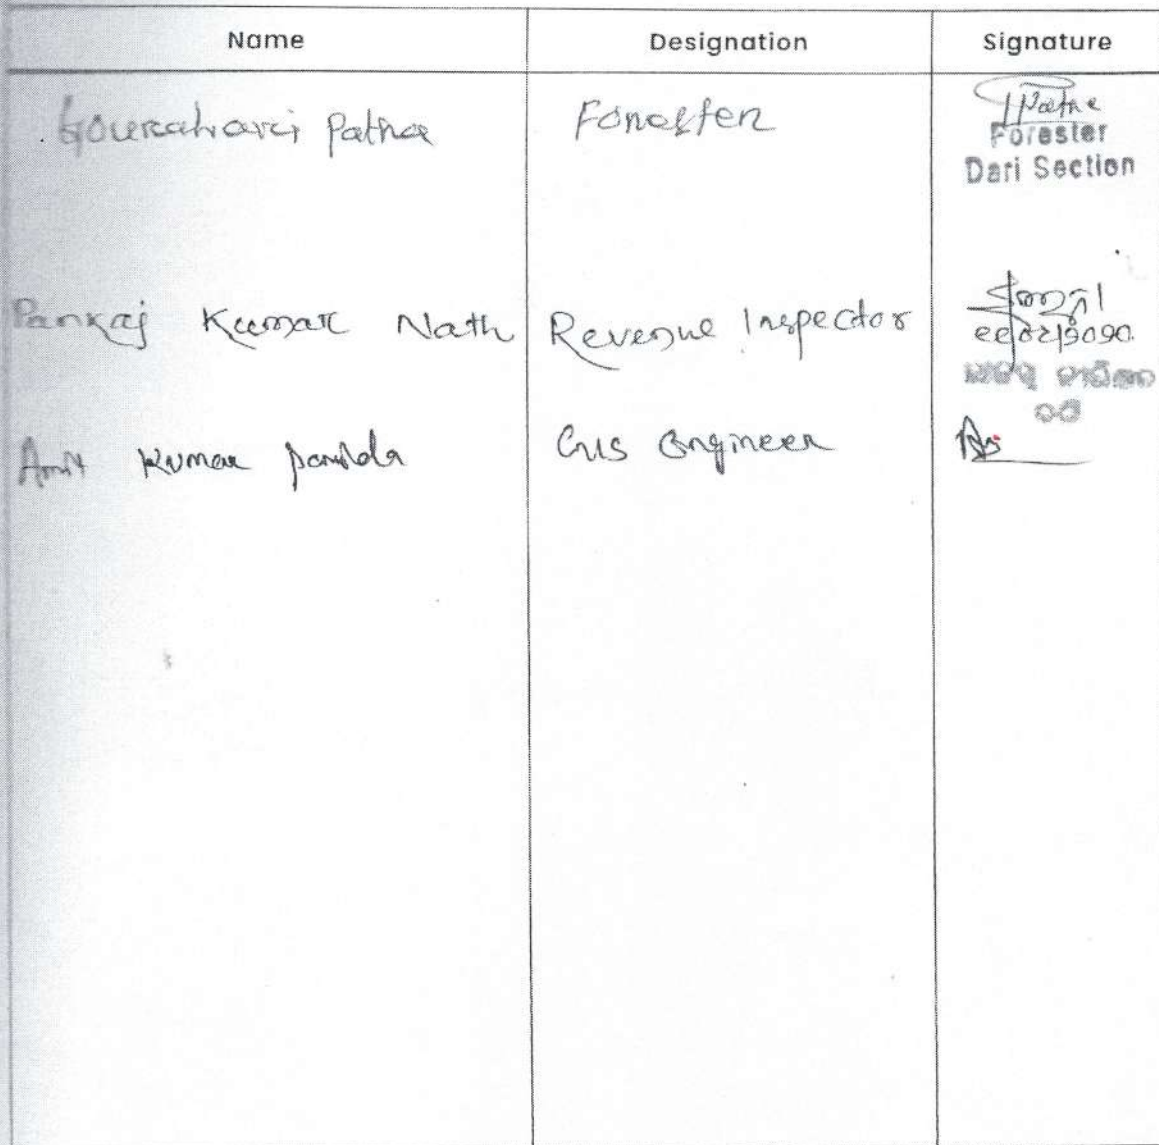 Name Designation Signature
Gourahari Patra Forester
Forester
Dari Section
Pankaj Kumar Nath Revenue Inspector
Amit Kumar panda GIS Engineer